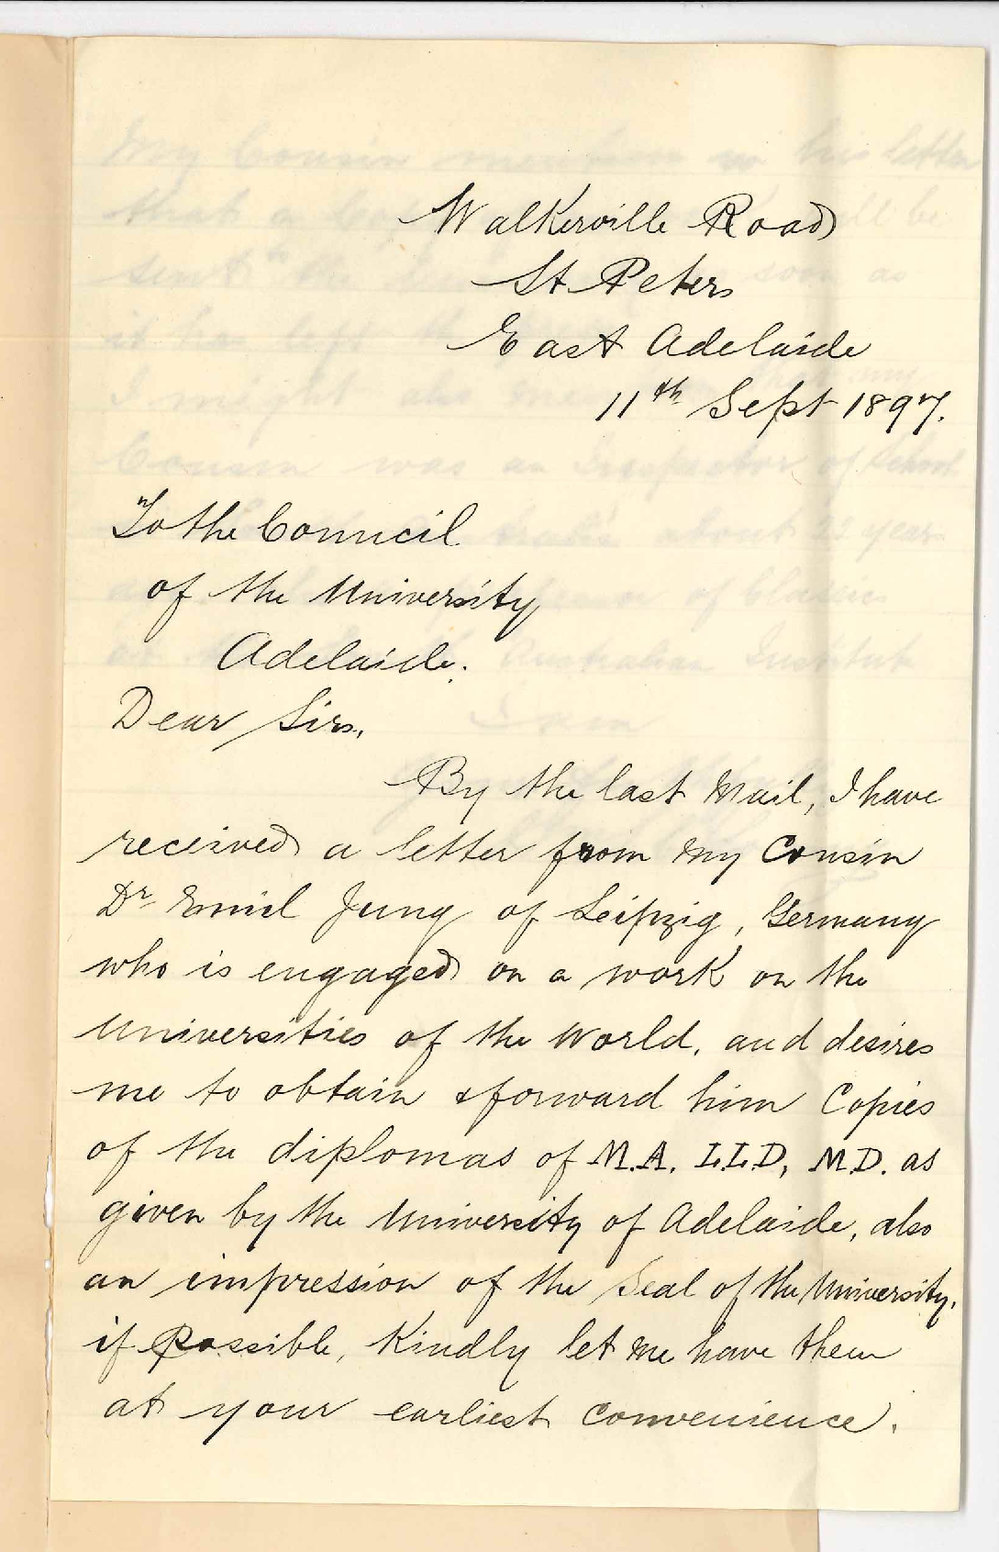 Walkerville Road
St Peters
East Adelaide
11th Sept 1897.
To the Council
of the University
Adelaide.
Dear Sirs,
By the last Mail, I have
received a letter from my Cousin
Dr Emil Jung of Leipzig, Germany
who is engaged on a work on the
Universities of the World, and desires
me to obtain & forward him Copies
of the diplomas of M.A. L.L.D, M.D. as
given by the University of Adelaide, also
an impression of the Seal of the University,
if Possible, Kindly let me have them
at your earliest convenience.